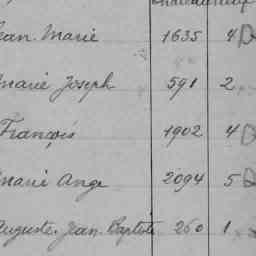 Jean Marie 1635 4
Marie Joseph 591 2
François 1902 4
Marie Ange 2094 5
Auguste Jean Baptiste 260 1